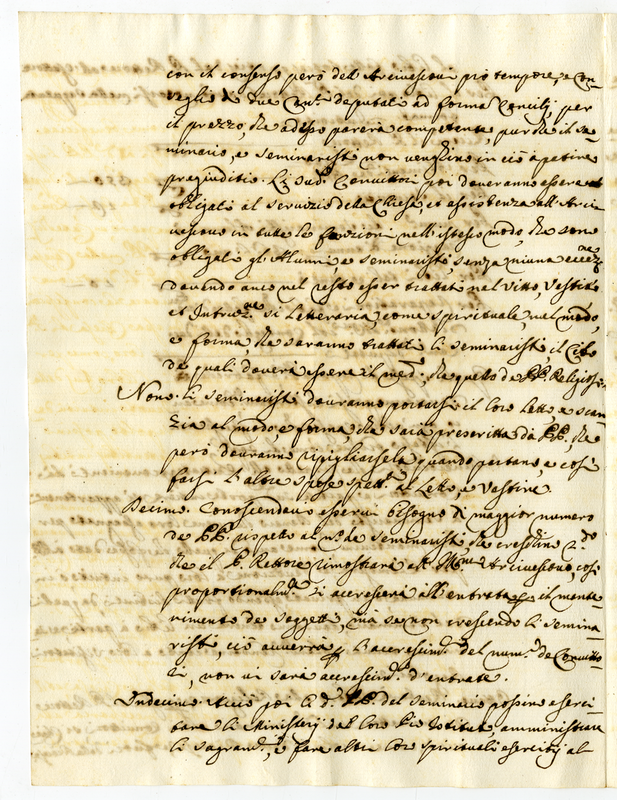 con il consenso però dell'Arcivescovi prò tempore, e Con=
seglio di due Can.ci deputati ad forma Concilij per
il prezzo, che adesso parerà competente, pur che il se=
minario, e seminaristi non venghino in ciò à patire
pregiuditio. Li sud.i Convittori poi doveranno essere
obligati al servizio della Chiesa, et assistenza all'Arci=
vescovo in tutte le funzioni nell'istesso modo, che sono
obligati gl'Alunni, e seminaristi, senza niuna eccez.ne
dovendo anco nel resto esser trattati nel vitto, vestito
et Intruz.ne si letteraria, come spirituale, nel modo,
e forma, che saranno trattati li seminaristi, il Cibo
de quali doverà essere il med.o che quello de PP. Religiosi.
Nono. Li seminaristi dovranno portarsi il loro letto e scan=
zia al modo, e forma, che sarà prescritta da PP., che
però dovranno ripigliarsela quando partano, e così
farsi l'altre spese spett.i al letto, e vestire.
Decimo. Conoscendosi esservi bisogno di maggior numero
de PP. rispetto al n.o de seminaristi, che crescesse
che il P. Rettore rimostrarà all' Arcivescovo, così
proportionalm.te si accrescerà all'entrate il mante=
nimento de soggetti, mà se non crescendo li semina=
risti, ciò avverrà p l'accrescim.to del num.o de Convitto=
ri, non vi sarà accrescim.to d'entrate.
Undecimo. Acciò poi li d.i PP. del seminario possino eserci=
tare li Ministerij del loro Pio Istituto, amministrare
li sagram.ti, e fare altri loro spirituali esercitij al